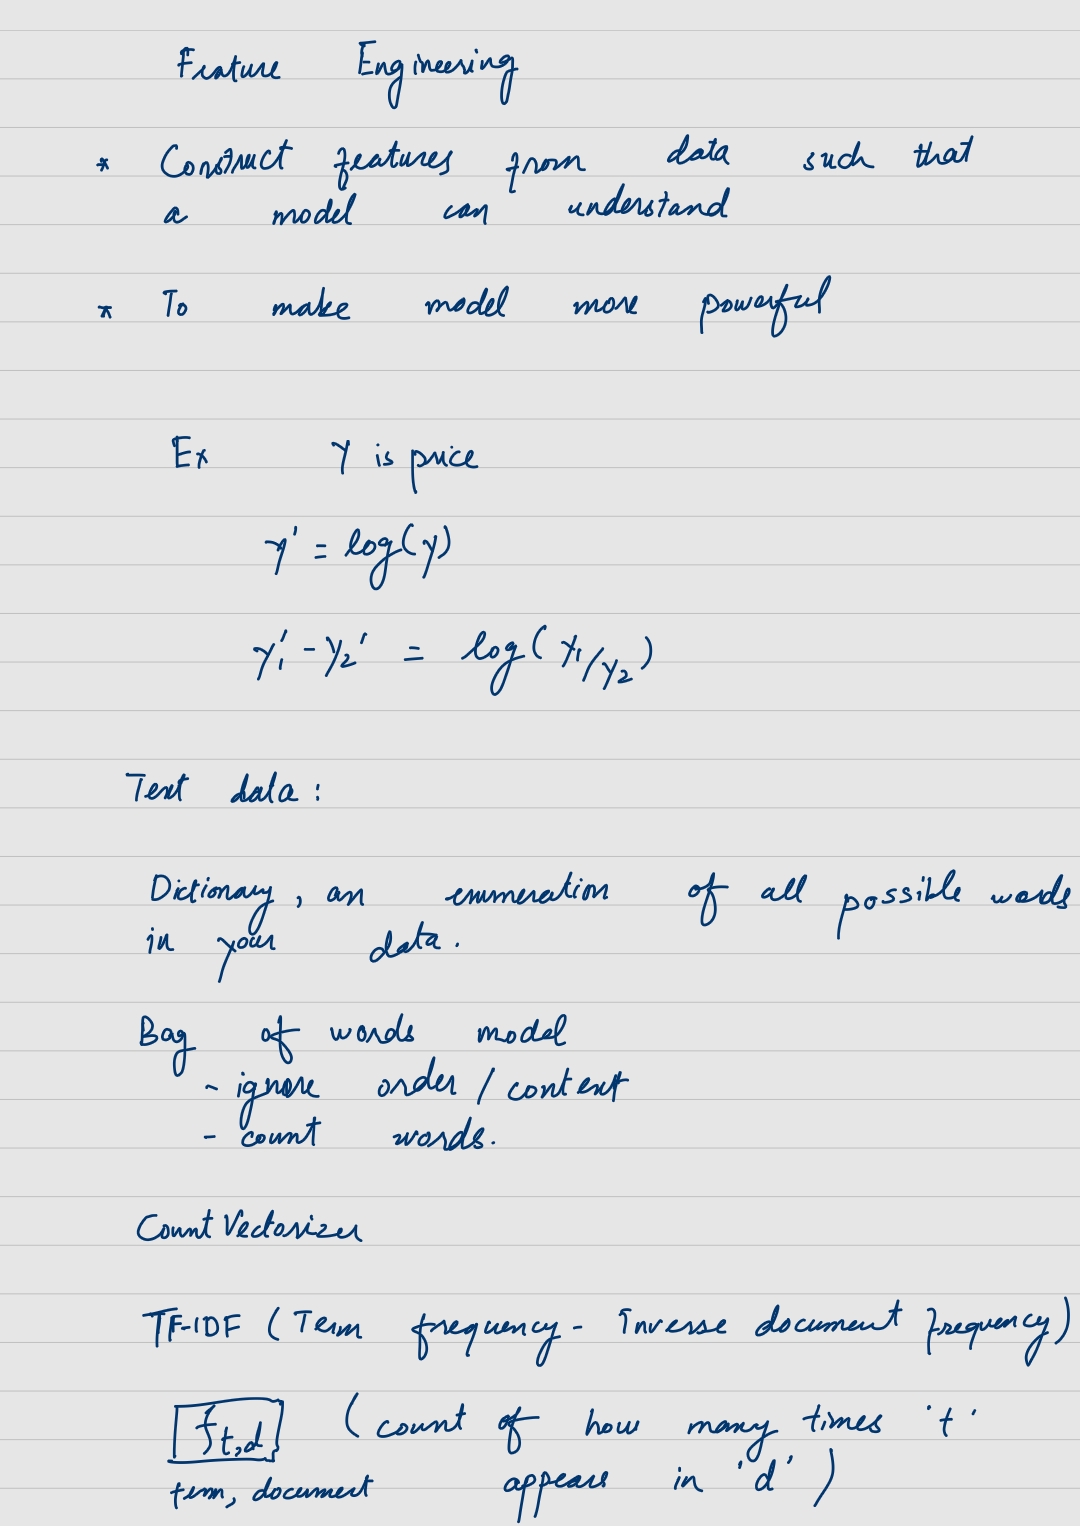 Feature Engineering
* Construct features from data such that
a model can understand
* To make model more powerful
Ex Y is price
y' = log(y)
y₁' - y₂' = log(y₁/y₂)
Text data:
Dictionary, an enumeration of all possible words
in your data.
Bag of words model
- ignore order / context
- count words.
Count Vectorizer
TF-IDF (Term frequency - Inverse document frequency)
f t,d (count of how many times 't'
term, document appears in 'd')